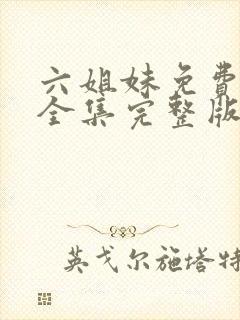 六姐妹免費
全集完整版
英戈尔施塔特